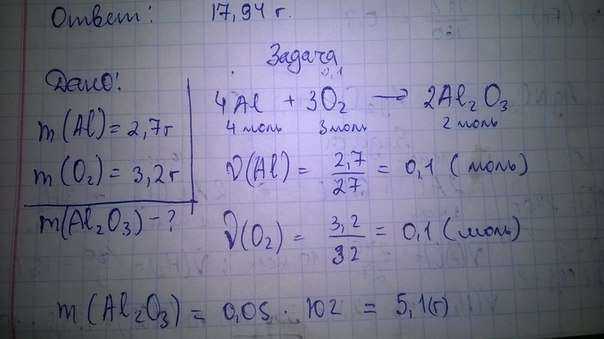 Ответ: 17,94 г.
Задача
Дано:
m(Al) = 2,7г
m(O₂) = 3,2г
m(Al₂O₃) - ?
0,1
4Al + 3O₂ → 2Al₂O₃
4 моль 3 моль 2 моль
ν(Al) = 2,7/27 = 0,1 (моль)
ν(O₂) = 3,2/32 = 0,1 (моль)
m(Al₂O₃) = 0,05 · 102 = 5,1(г)